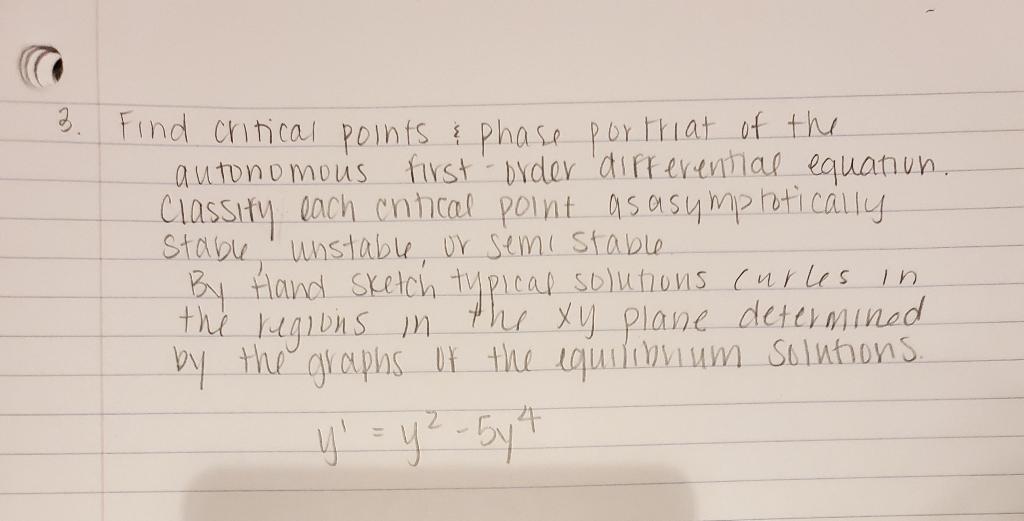 3. Find critical points & phase portriat of the
autonomous first-order differential equation.
Classify each critical point as asymptotically
stable, unstable, or semi stable
By Hand sketch typical solutions curles in
the regions in the xy plane determined
by the graphs of the equilibrium solutions.
y' = y² - 5y⁴